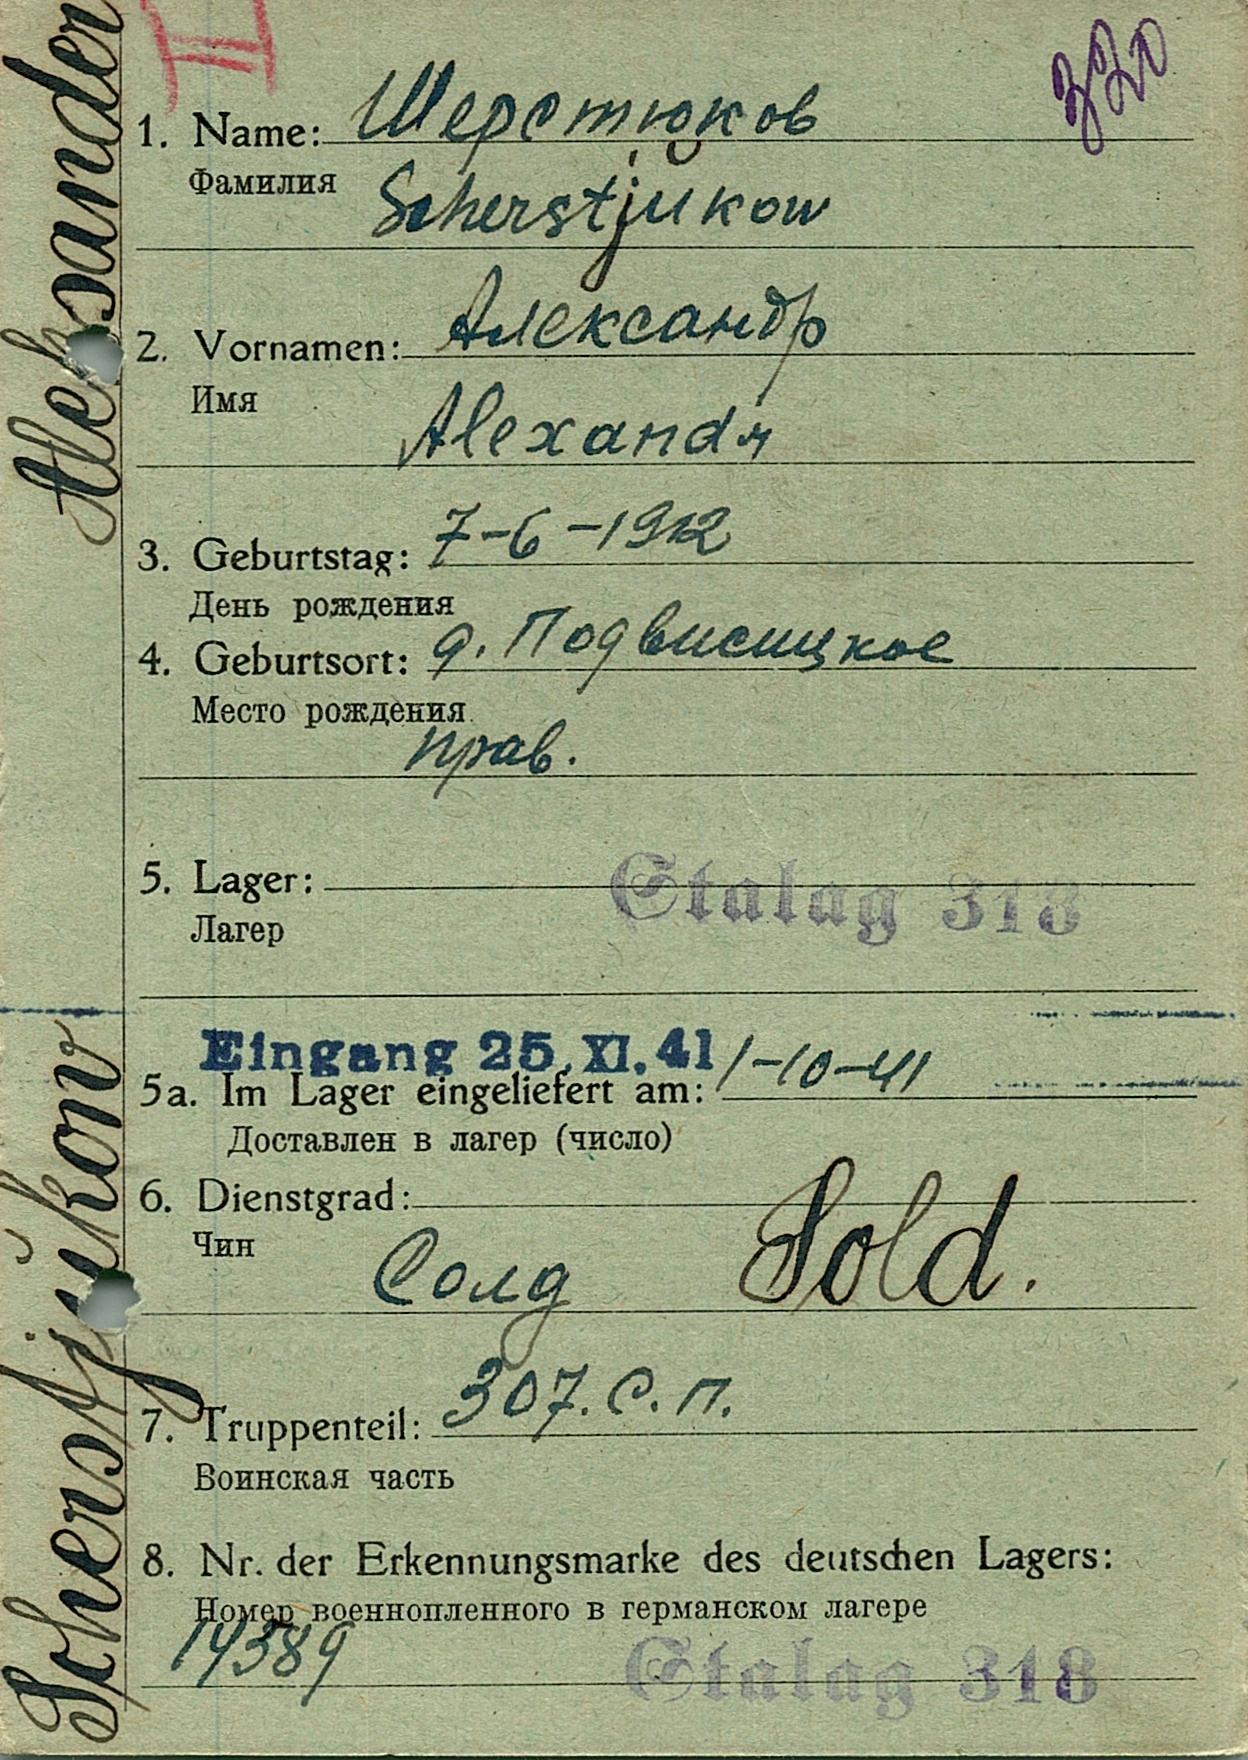 II
320
1. Name: Шерстюков
Фамилия
Scherstjŭkow
2. Vornamen: Александр
Имя
Alexandr
3. Geburtstag: 7-6-1912
День рождения
4. Geburtsort: д. Подвисицкое
Место рождения
прав.
5. Lager:
Лагер
Stalag 318
Eingang 25. XI. 41
5a. Im Lager eingeliefert am: 1-10-41
Доставлен в лагер (число)
6. Dienstgrad:
Чин
Солд Sold.
7. Truppenteil: 307. С. П.
Воинская часть
8. Nr. der Erkennungsmarke des deutschen Lagers:
Номер военнопленного в германском лагере
14389
Stalag 318
Scherstjŭkow Aleksander